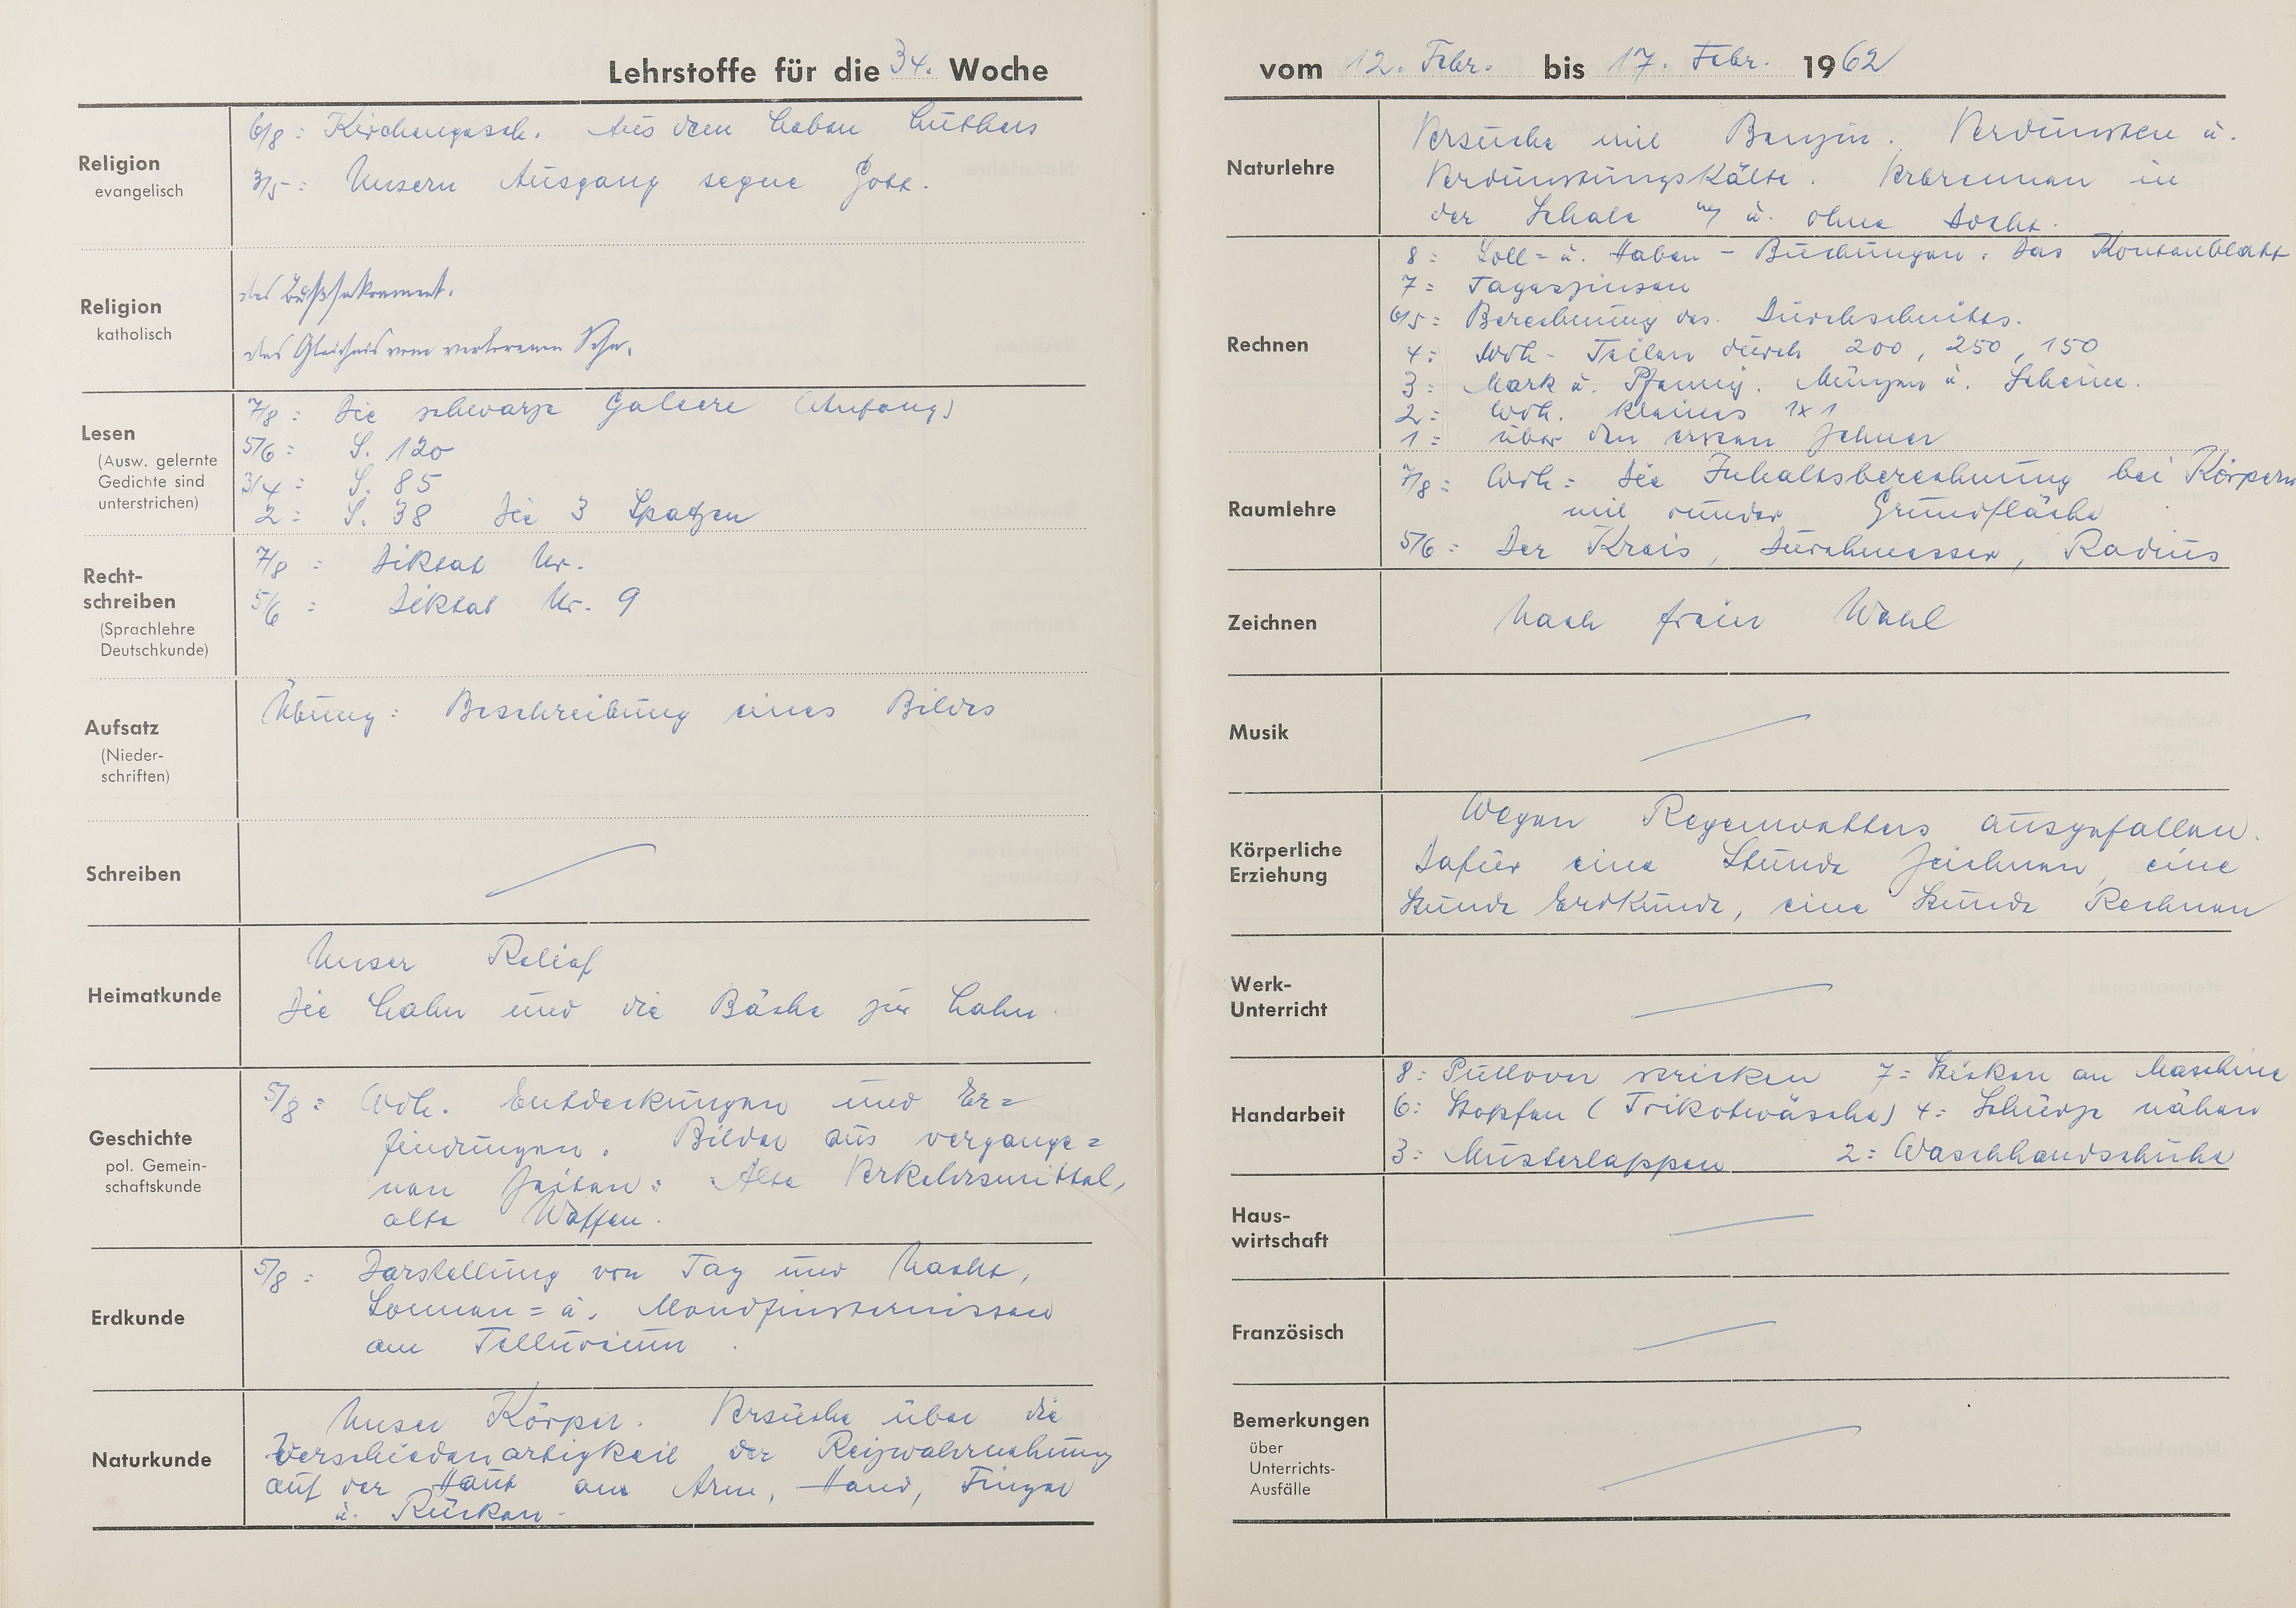 Lehrstoffe für die 34. Woche
Religion
evangelisch
6/8: Kirchengesch. Aus dem Leben Luthers
3/5: Unsern Ausgang segne Gott.
Religion
katholisch
das Bußsakrament.
das Gleichnis vom verlorenen Sohn.
Lesen
(Ausw. gelernte
Gedichte sind
unterstrichen)
7/8: Die schwarze Galeere (Anfang)
5/6: S. 120
3/4: S. 85
2: S. 38 Die 3 Spatzen
Recht-
schreiben
(Sprachlehre
Deutschkunde)
7/8: Diktat Nr.
5/6: Diktat Nr. 9
Aufsatz
(Nieder-
schriften)
Übung: Beschreibung eines Bildes
Schreiben
Heimatkunde
Unser Relief
Die Lahn und die Bäche zur Lahn.
Geschichte
pol. Gemein-
schaftskunde
5/8: Wdh. Entdeckungen und Er=
findungen. Bilder aus vergange=
nen Zeiten: Alte Verkehrsmittel,
alte Waffen.
Erdkunde
5/8: Darstellung von Tag und Nacht,
Sonnen= u. Mondfinsternissen
am Tellurium.
Naturkunde
Unser Körper. Versuche über die
Verschiedenartigkeit der Reizwahrnehmung
auf der Haut am Arm, Hand, Finger
u. Rücken.
vom 12. Febr. bis 17. Febr. 1962
Naturlehre
Versuche mit Benzin. Verdunsten u.
Verdunstungskälte. Verbrennen in
der Schale u. ohne Docht.
Rechnen
8: Soll= u. Haben - Buchungen. Das Kontenblatt
7: Tageszinsen
6/5: Berechnung des Durchschnitts.
4: Wdh. Teilen durch 200, 250, 150
3: Mark u. Pfennig. Münzen u. Scheine.
2: Wdh. kleines 1x1
1: über den ersten Zehner
Raumlehre
7/8: Wdh: Die Inhaltsberechnung bei Körpern
mit runder Grundfläche
5/6: Der Kreis, Durchmesser, Radius
Zeichnen
Nach freier Wahl
Musik
Körperliche
Erziehung
Wegen Regenwetters ausgefallen.
Dafür eine Stunde Zeichnen, eine
Stunde Erdkunde, eine Stunde Rechnen
Werk-
Unterricht
Handarbeit
8: Pullover stricken 7: Sticken an Maschine
6: Stopfen (Trikotwäsche) 4: Schürze nähen
3: Musterlappen 2: Waschhandschuhe
Haus-
wirtschaft
Französisch
Bemerkungen
über
Unterrichts-
Ausfälle